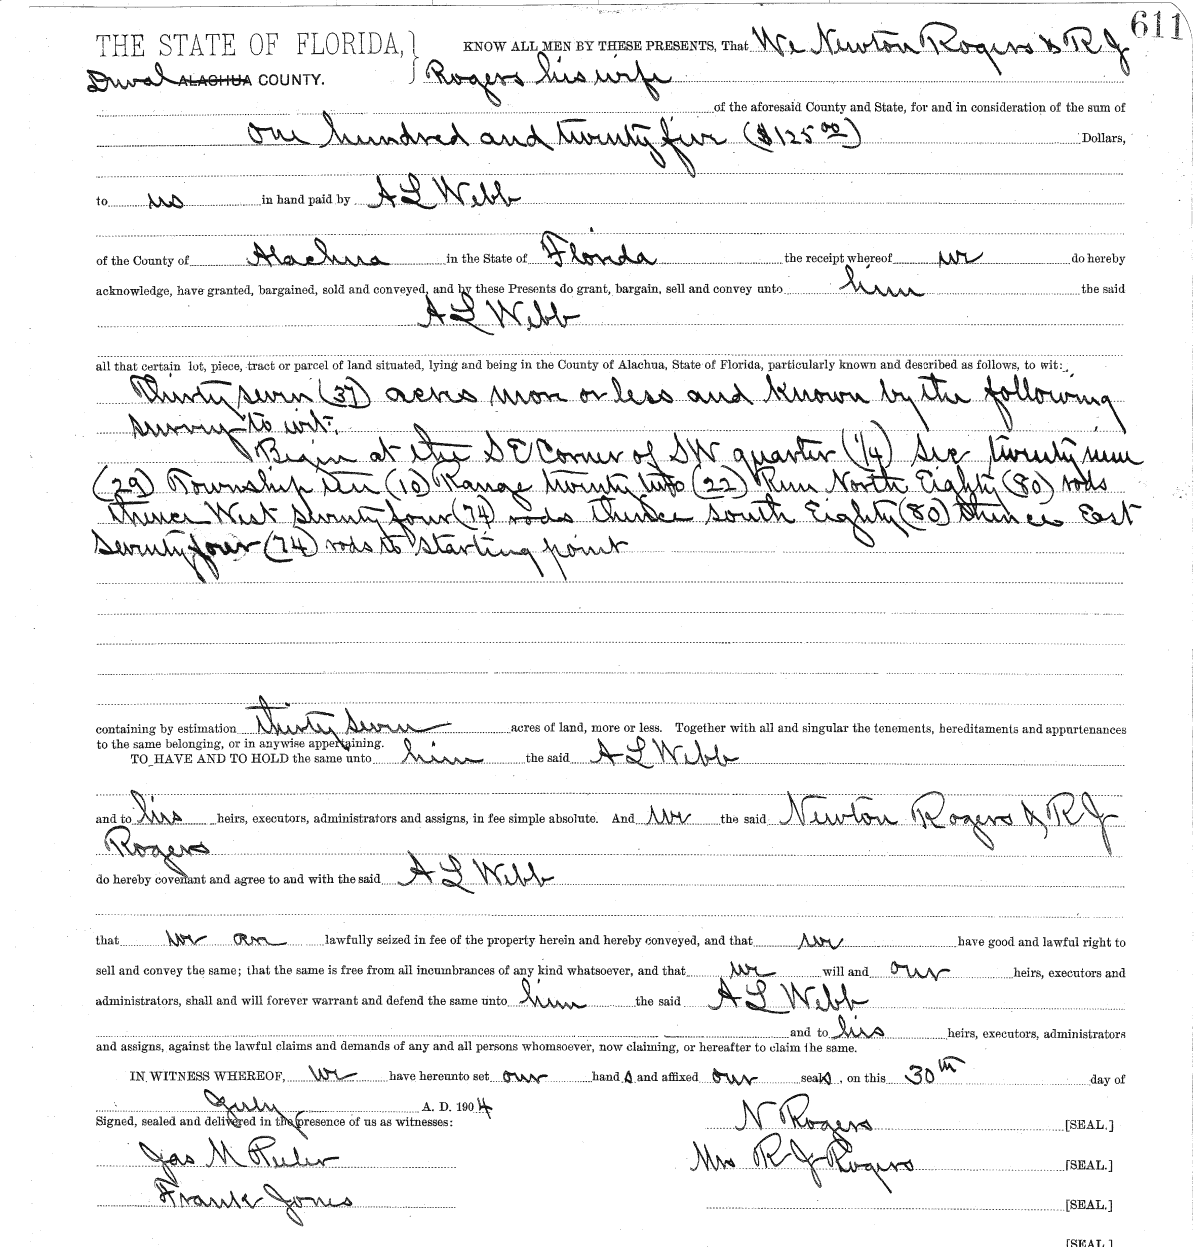 611
THE STATE OF FLORIDA, } KNOW ALL MEN BY THESE PRESENTS, That We Newton Rogers & R J
Duval ALACHUA COUNTY. Rogers his wife
of the aforesaid County and State, for and in consideration of the sum of
One hundred and twenty five ($125 00) Dollars,
to us in hand paid by A L Webb
of the County of Alachua in the State of Florida the receipt whereof we do hereby
acknowledge, have granted, bargained, sold and conveyed, and by these Presents do grant, bargain, sell and convey unto him the said
A L Webb
all that certain lot, piece, tract or parcel of land situated, lying and being in the County of Alachua, State of Florida, particularly known and described as follows, to wit:
Thirty seven (37) acres more or less and known by the following
survey to wit:
Begin at the SE Corner of SW quarter (1/4) Sec twenty nine
(29) Township ten (10) Range twenty two (22) Run North Eighty (80) rods
thence West seventy four (74) rods thence south Eighty (80) thence East
Seventy four (74) rods to starting point
containing by estimation thirty seven acres of land, more or less. Together with all and singular the tenements, hereditaments and appurtenances
to the same belonging, or in anywise appertaining.
TO HAVE AND TO HOLD the same unto him the said A L Webb
and to his heirs, executors, administrators and assigns, in fee simple absolute. And we the said Newton Rogers & R J
Rogers
do hereby covenant and agree to and with the said A L Webb
that we are lawfully seized in fee of the property herein and hereby conveyed, and that we have good and lawful right to
sell and convey the same; that the same is free from all incumbrances of any kind whatsoever, and that we will and our heirs, executors and
administrators, shall and will forever warrant and defend the same unto him the said A L Webb
and to his heirs, executors, administrators
and assigns, against the lawful claims and demands of any and all persons whomsoever, now claiming, or hereafter to claim the same.
IN WITNESS WHEREOF, we have hereunto set our hand s and affixed our seals, on this 30th day of
July A. D. 1904
Signed, sealed and delivered in the presence of us as witnesses: N Rogers [SEAL.]
Jas M Mrs R J Rogers [SEAL.]
Frank Jones [SEAL.]
[SEAL.]